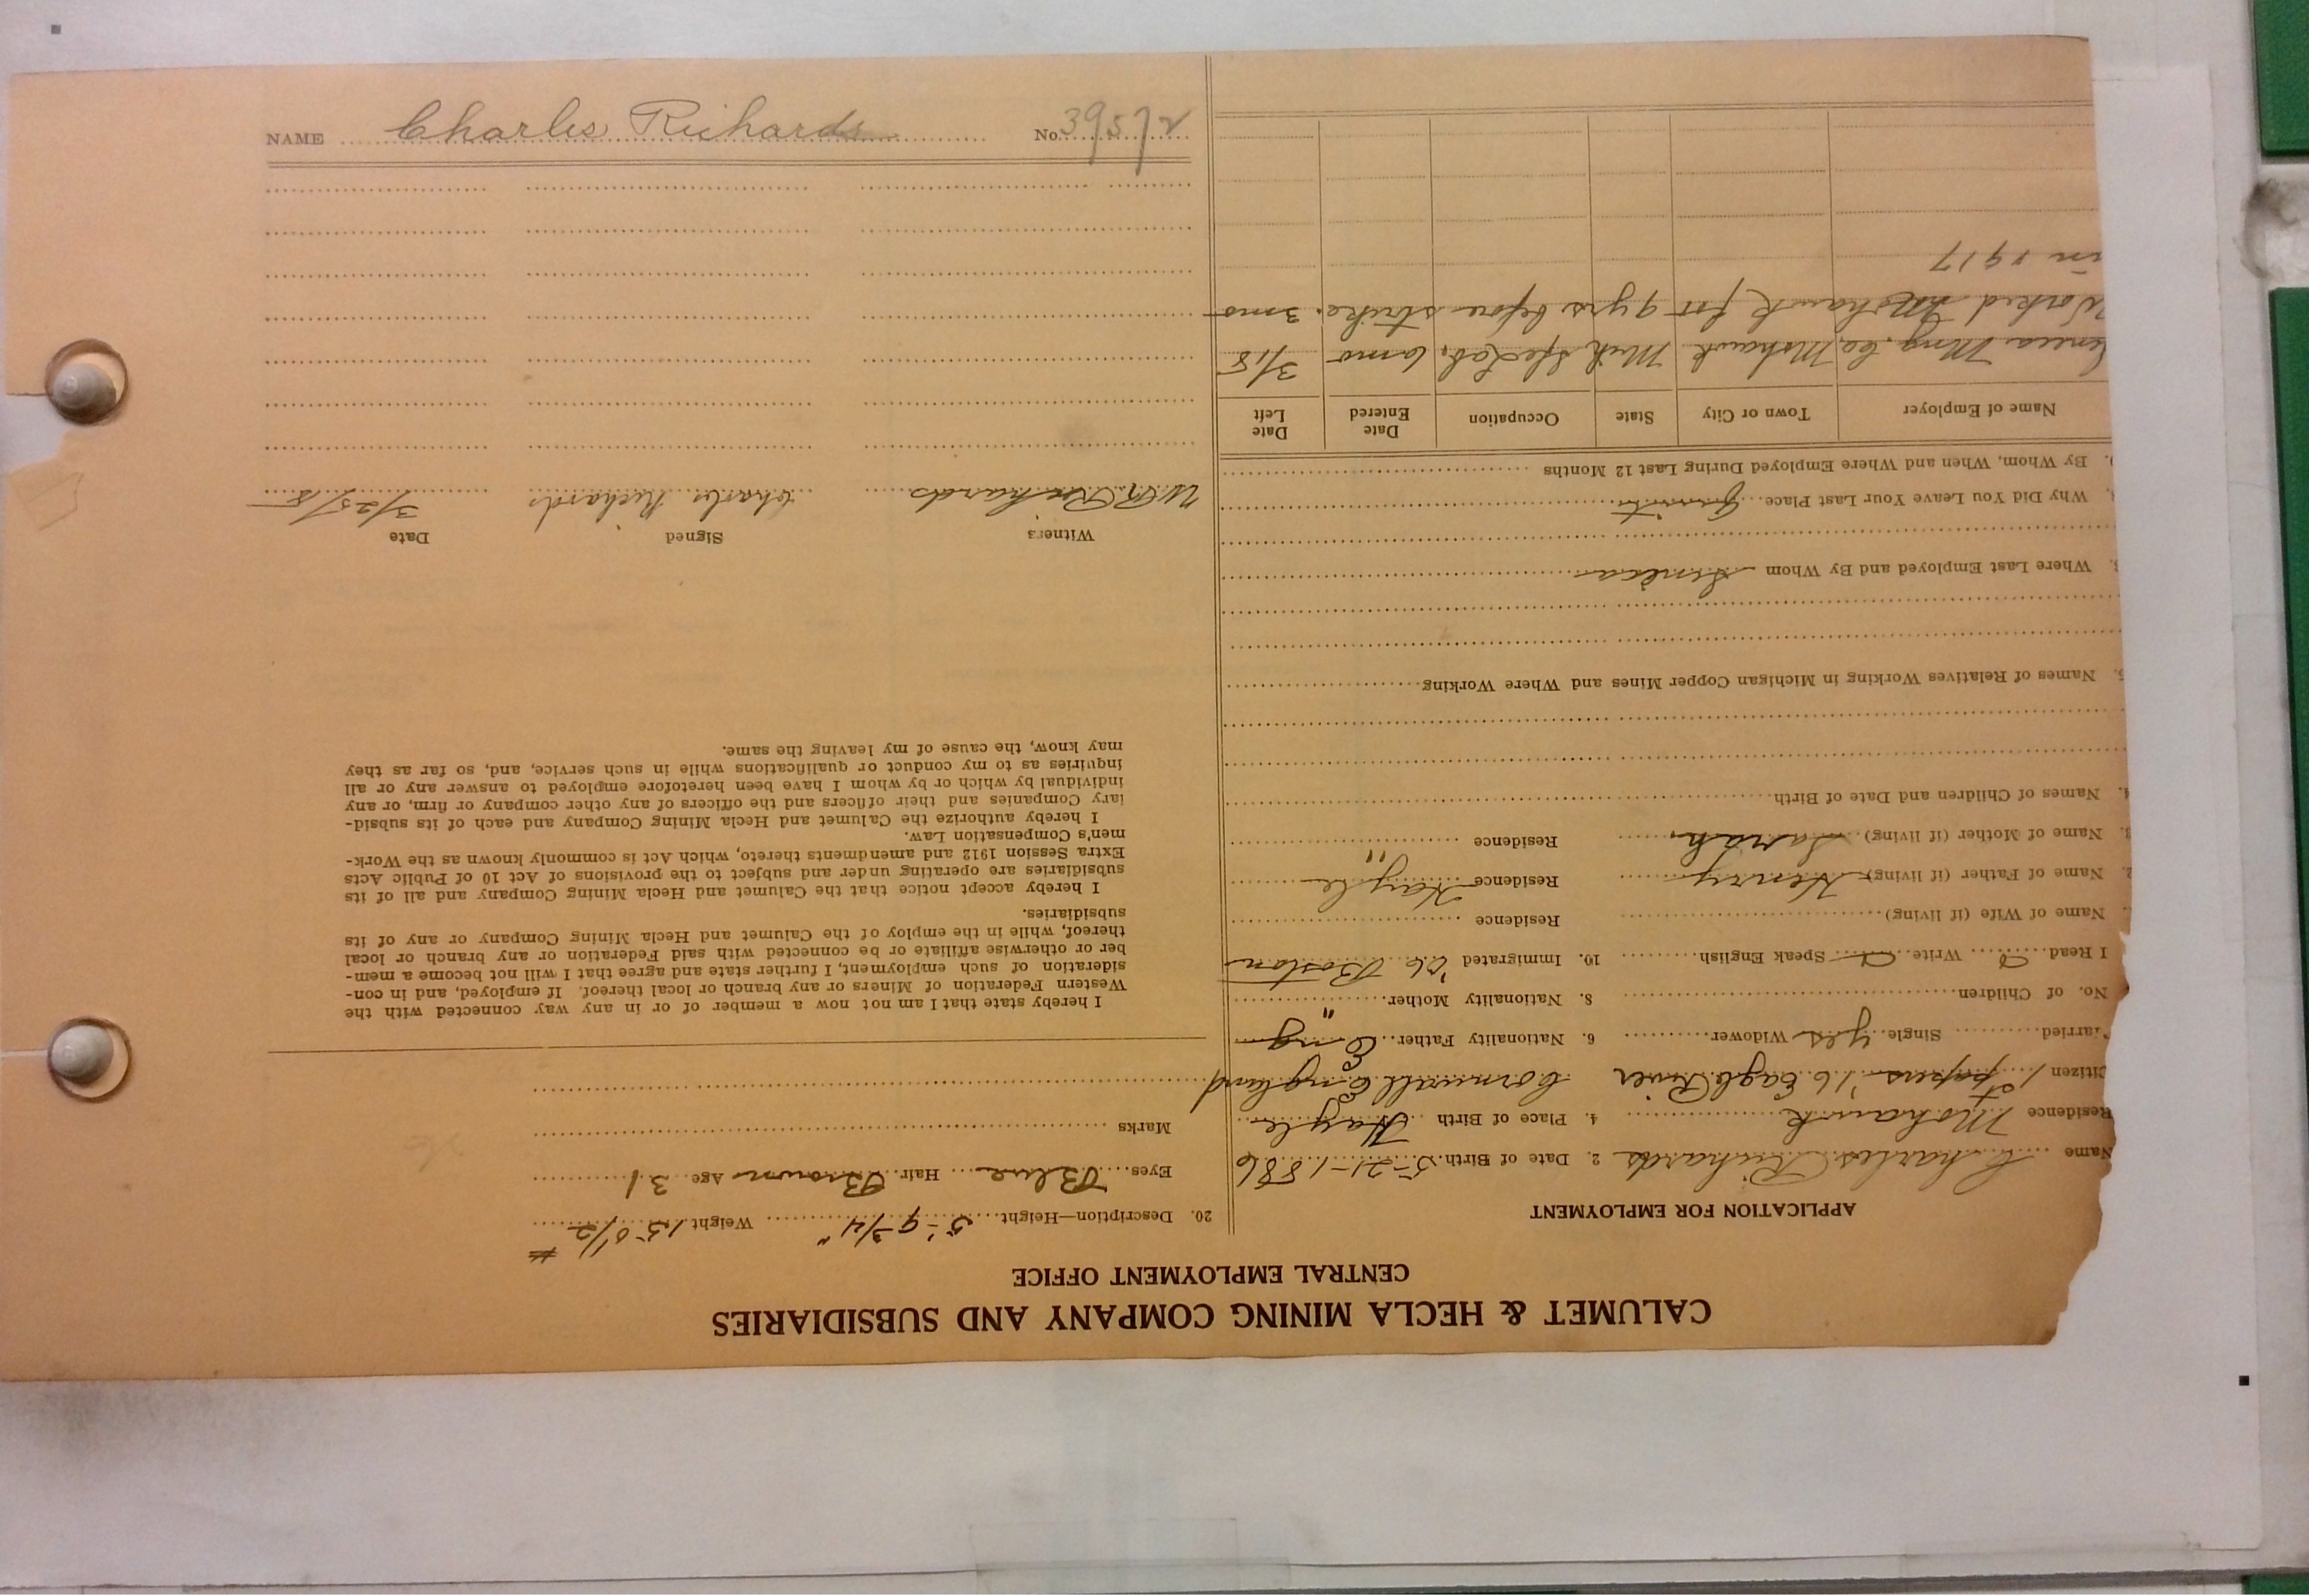 CALUMET & HECLA MINING COMPANY AND SUBSIDIARIES
CENTRAL EMPLOYMENT OFFICE
APPLICATION FOR EMPLOYMENT
Name Charles Richards 2. Date of Birth 5-21-1886
Residence Mohawk 4. Place of Birth Hayle
Citizen 1st papers '16 Eagle River Cornwall England
Married Single yes Widower 6. Nationality Father Eng
No. of Children 8. Nationality Mother "
I Read Write Speak English 10. Immigrated '06 Boston
Name of Wife (if living) Residence
2. Name of Father (if living) Henry Residence Hayle
3. Name of Mother (if living) Sarah Residence "
4. Names of Children and Date of Birth
5. Names of Relatives Working in Michigan Copper Mines and Where Working
Where Last Employed and By Whom Seneca
Why Did You Leave Your Last Place
By Whom, When and Where Employed During Last 12 Months
Name of Employer Town or City State Occupation Date Entered Date Left
Seneca Mng. Co. Mohawk Mich 6 mo 3/18
Worked Mohawk for 9 yrs before strike. 3 mo
in 1917
20. Description—Height 5'-9 3/4" Weight 150 1/2 #
Eyes Blue Hair Brown Age 31
Marks
I hereby state that I am not now a member of or in any way connected with the
Western Federation of Miners or any branch or local thereof. If employed, and in con-
sideration of such employment, I further state and agree that I will not become a mem-
ber or otherwise affiliate or be connected with said Federation or any branch or local
thereof, while in the employ of the Calumet and Hecla Mining Company or any of its
subsidiaries.
I hereby accept notice that the Calumet and Hecla Mining Company and all of its
subsidiaries are operating under and subject to the provisions of Act 10 of Public Acts
Extra Session 1912 and amendments thereto, which Act is commonly known as the Work-
men's Compensation Law.
I hereby authorize the Calumet and Hecla Mining Company and each of its subsid-
iary Companies and their officers and the officers of any other company or firm, or any
individual by which or by whom I have been heretofore employed to answer any or all
inquiries as to my conduct or qualifications while in such service, and, so far as they
may know, the cause of my leaving the same.
Witness Signed Date
W. R. Richards Charles Richards 3/25/18
NAME Charles Richards No. 39572